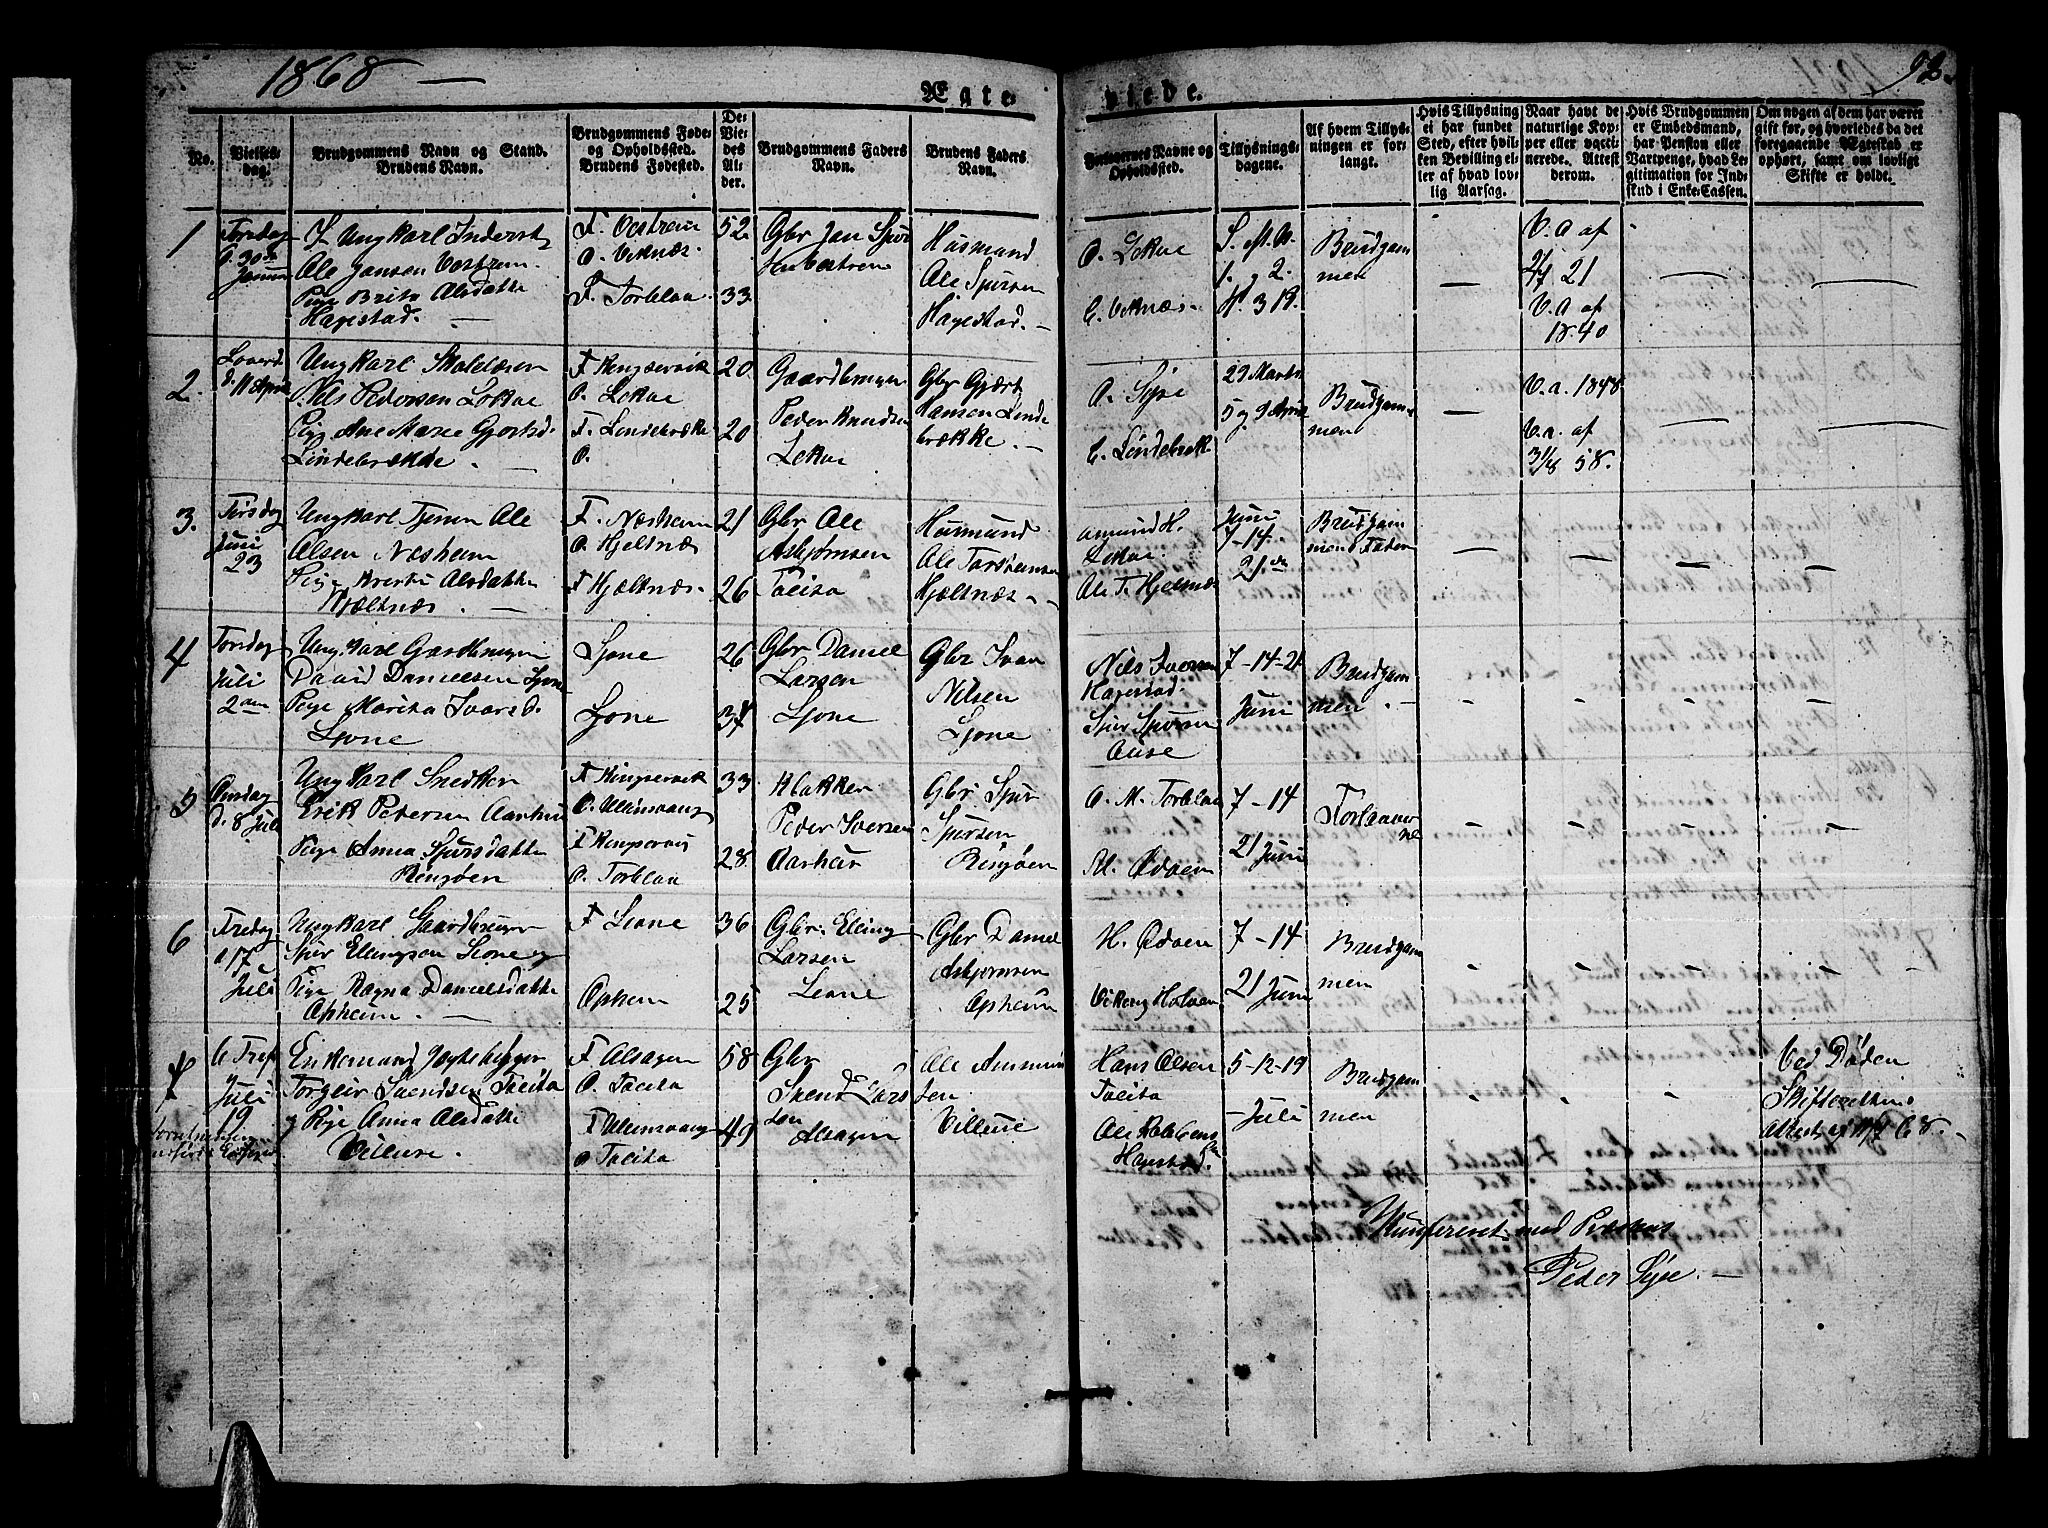 1868 —
92.
Ægte
viede.
No.
Vielses-
dag.
Brudgommens Navn og Stand.
Brudens Navn.
Brudgommens Føde-
og Opholdssted.
Brudens Fødested.
De
Vie-
des
Al-
der.
Brudgommens Faders
Navn.
Brudens Faders
Navn.
Forlovernes Navne og
Opholdssted.
Tillysnings-
dagene.
Af hvem Tillys-
ningen er for-
langt.
Hvis Tillysning
ei har fundet
Sted, efter hvil-
ken Bevilling el-
ler af hvad lov-
lig Aarsag.
Naar havt de
naturlige Kop-
per eller vacci-
nerede. Attest
derom.
Hvis Brudgommen
er Embedsmand,
har Pension eller
Vartpenge, hvad Le-
gitimation for Ind-
skud i Enke-Cassen.
Om nogen af dem har været
gift før, og hvorledes da det
foregaaende Ægteskab er
ophørt, samt om lovligt
Skifte er holdt.
1
Torsdag
d. 30te
Januar
Ungkarl Inderst
Ole Jansen Vestrem
Pige Brita Olsdatter
Hagestad. —
F. Vestrem
O. Viknæs
F. Torblaa
52
33
Gbr Jan Sjur
sen Vestrem
Husmand
Ole Sjursen
Hagestad. —
O. Lekve
E. Viknæs
1. g 2.
Brudgom
men
V. a af
21
V. a af
1840
2.
Løverd
d. 11 April
Ungkarl Skolelærer
Nils Pedersen Lekve
Pige Ane Marie Gjertsd.
Lindebrække. —
F Kingservik
O. Lekve
F. Lindebrække
O.
20
20
Gaardbruger
Peder Knudsen
Lekve
Gbr Gjert
Hansen Linde
brække. —
O. Syse
E. Lindebrek
29 Marts
5 g 9 April
Brudgom
men
V. a. 1848
V. a. af
31/8 58.
3.
Tirsdag
Juni
23
Ungkarl Tjener Ole
Olsen Nesheim
Pige Olsdatter
Hjeltnæs. —
F. Næsheim
O. Hjeltnæs
F Hjeltnæs
21
26
Gbr Ole
Asbjørnsen
Tveito
Husmand
Ole Torsteinsen
Hjeltnæs —
Amund H.
Lekve
Ole T. Hjeltnæs
Juni
7-14.
21de
Brudgom
mens Fader
4
Torsdag
Juli
2den
Ungkarl Gaardbruger
David Danielsen Ljone
Pige Marita Ivarsd.
Ljone
Ljone
Ljone
26
34
Gbr Daniel
Larsen
Ljone
Gbr Ivar
Nilsen
Ljone
Nils Iversen
Hagestad
Sjur
7-14-21
Juni
Brudgom
men. —
5
Onsdag
d. 8 Juli
Ungkarl Snedker
Erik Pedersen Aarhus
Pige Anna Sjursdatter
Ringøen
F Kingservik
O. Ullensvang
F Kingservig
O. Torblaa
33
28
Klokker
Peder Iversen
Aarhus
Gbr Sjur
Sjursen
Ringøen
O. M. Torblaa
M. Ødven
7-14
21 Juni
Forloverne
6
Fredag
17
Juli
Ungkarl Gaardbruger
Sjur Ellingsen Lione og
Pige Ragna Danielsdatter
Opheim. —
F Lione
Opheim
36
25
Gbr. Elling
Larsen
Lione
Gbr Daniel
Asbjørnsen
Opheim
H. Ødven
Viking Halven
7-14
21 Juni
Brudgom
men
7
Juli
19
Enkemand Jagtebygger
Torgeir Svendsen Tveito
g Pige Anna Olsdatter
Villure.
F Alsager
O. Tveito
F Ullensvang
O Tveito
58
49
Gbr
Svend Lars
sen
Alsager
Ole Ammun
sen
Villure
Hans Olsen
Tveito
Ole
Hagestad
5-12-19
—Juli
Brudgom
men
Ved Døden
Skifterettens
Attest af 68. —
Konfereret med Præstens
Peder Syse. —